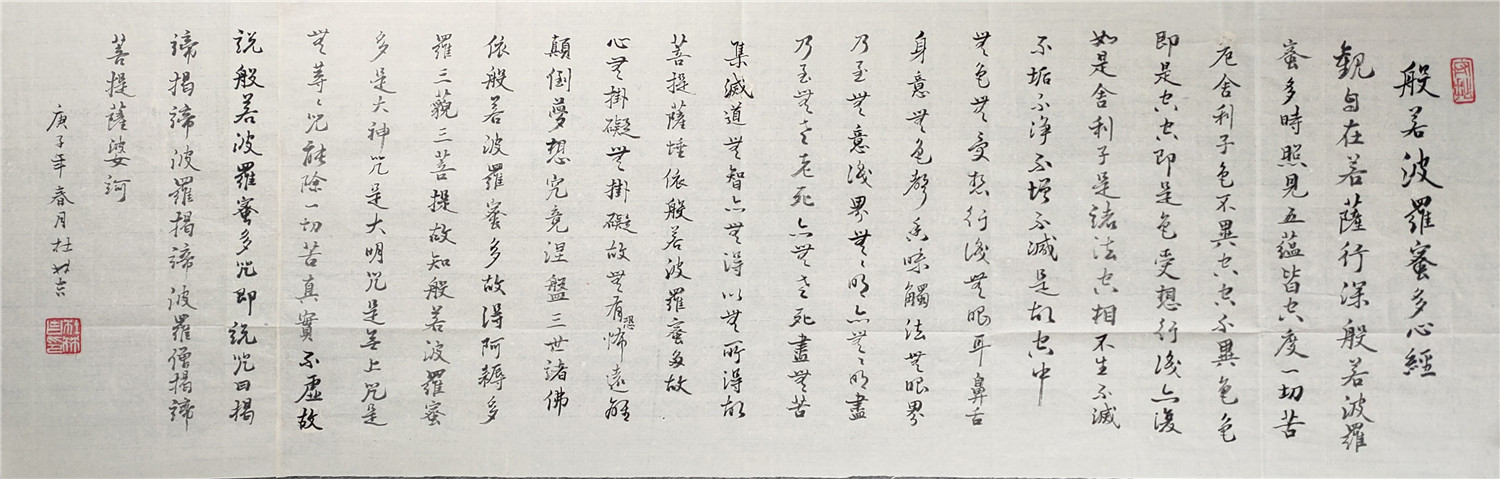 般若波羅蜜多心經
觀自在若薩行深般若波羅
蜜多時照見五蘊皆空度一切苦
厄舍利子色不異空空不異色色
即是空空即是色受想行識亦復
如是舍利子是諸法空相不生不滅
不垢不淨不增不減是故空中
無色無受想行識無眼耳鼻舌
身意無色聲香味觸法無眼界
乃至無意識界無々明亦無々明盡
乃至無老老死亦無老死盡無苦
集滅道無智亦無得以無所得故
菩提薩埵依般若波羅蜜多故
心無掛礙無掛礙故無有恐怖遠離
顛倒夢想究竟涅盤三世諸佛
依般若波羅蜜多故得阿耨多
羅三藐三菩提故知般若波羅蜜
多是大神咒是大明咒是無上咒是
無等々咒能除一切苦真實不虛故
說般若波羅蜜多咒即說咒曰揭
諦揭諦波羅揭諦波羅僧揭諦
菩提薩婆訶
庚子年春月杜林吉